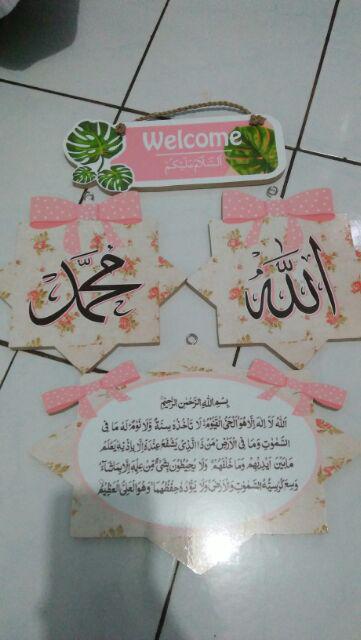 Welcome
اَلسَّلَامُ عَلَيْكُمْ
اللّٰه
محمّد
بِسْمِ اللّٰهِ الرَّحْمٰنِ الرَّحِيْمِ
اَللّٰهُ لَآ اِلٰهَ اِلَّا هُوَ الْحَيُّ الْقَيُّوْمُ لَا تَأْخُذُهُ سِنَةٌ وَّلَا نَوْمٌ لَهُ مَا فِى
السَّمٰوٰتِ وَمَا فِى الْاَرْضِ مَنْ ذَا الَّذِيْ يَشْفَعُ عِنْدَهُ اِلَّا بِاِذْنِهِ يَعْلَمُ
مَا بَيْنَ اَيْدِيْهِمْ وَمَا خَلْفَهُمْ وَلَا يُحِيْطُوْنَ بِشَيْءٍ مِّنْ عِلْمِهِ اِلَّا بِمَا شَآءَ
وَسِعَ كُرْسِيُّهُ السَّمٰوٰتِ وَالْاَرْضَ وَلَا يَـُٔوْدُهُ حِفْظُهُمَا وَهُوَ الْعَلِيُّ الْعَظِيْمُ